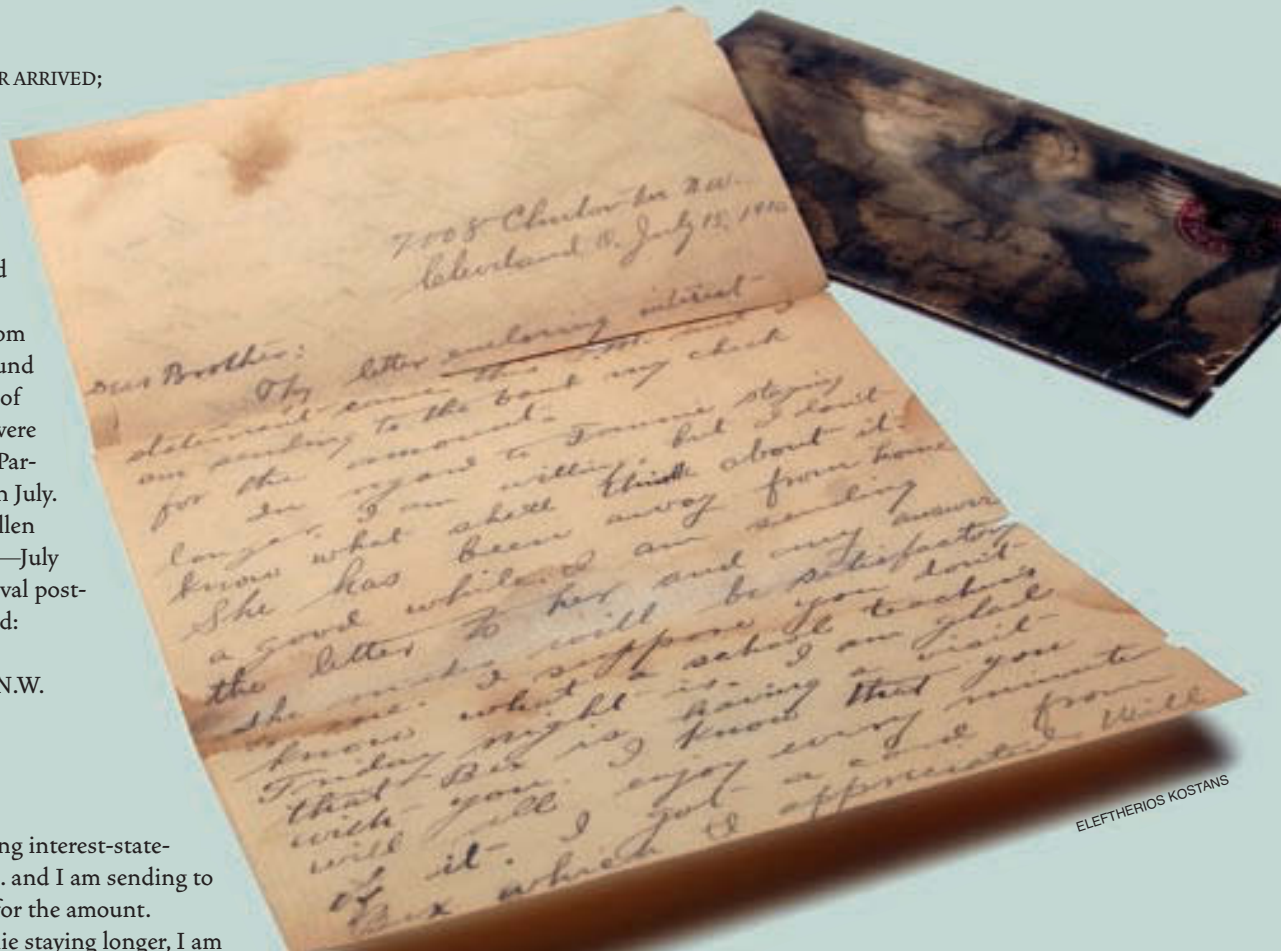 R ARRIVED;
d
om
und
of
were
Par-
n July.
llen
—July
val post-
d:
N.W.
ng interest-state-
. and I am sending to
for the amount.
ie staying longer, I am
7008
Cleveland O. July 15, 1910
Dear Brother:
Thy letter enclosing interest-
statement came this A.M. and I
am sending to the bank my check
for the amount.
In regard to Fannie staying
longer, I am willing, but I don't
know what she'll think about it.
She has been away from home
a good while. I am sending
the letter to her and any answer
she makes will be satisfactory
to me. I suppose you don't
know what a school teacher's
Friday night is. I am glad
that Bex is having a visit
with you. I know that you
will all enjoy every minute
of it. I got a card from
Bex which I appreciated. Will
ELEFTHERIOS KOSTANS